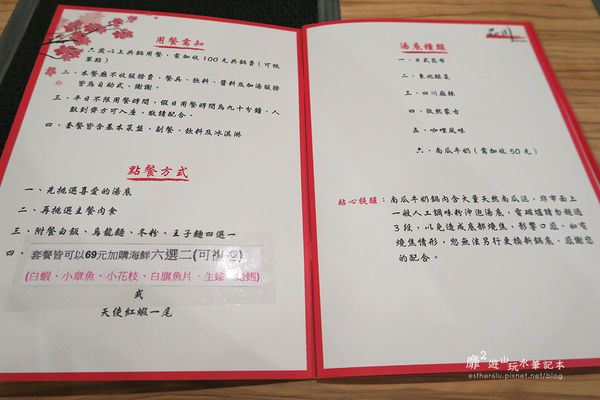 用餐需知
一、六歲以上共鍋用餐，需加收100元共鍋費(可抵
單點)
二、本餐廳不收服務費，餐具、飲料、醬料及加湯服務
皆為自助式，謝謝。
三、平日不限用餐時間，假日用餐時間為九十分鐘，人
數到齊方可入座，敬請配合。
四、套餐皆含基本菜盤、副餐、飲料及冰淇淋
點餐方式
一、先挑選喜愛的湯底
二、再挑選主餐肉食
三、附餐白飯、烏龍麵、冬粉、王子麵四選一
四、套餐皆可以69元加購海鮮六選二(可複選)
(白蝦、小章魚、小花枝、白旗魚片、生蠔、蛤蜊)
或
天使紅蝦一尾
湯底種類
一、日式昆布
二、東北酸菜
三、四川麻辣
四、孜然蒙古
五、咖哩風味
六、南瓜牛奶(需加收50元)
貼心提醒：南瓜牛奶鍋內含大量天然南瓜泥，非市面上
一般人工調味粉沖泡湯底，電磁爐請勿超過
3段，以免造成底部燒焦，影響口感。如有
燒焦情形，恕無法另行更換新鍋底，感謝您
的配合。
靡2遊山玩水筆記本
estherslu.pixnet.net/blog